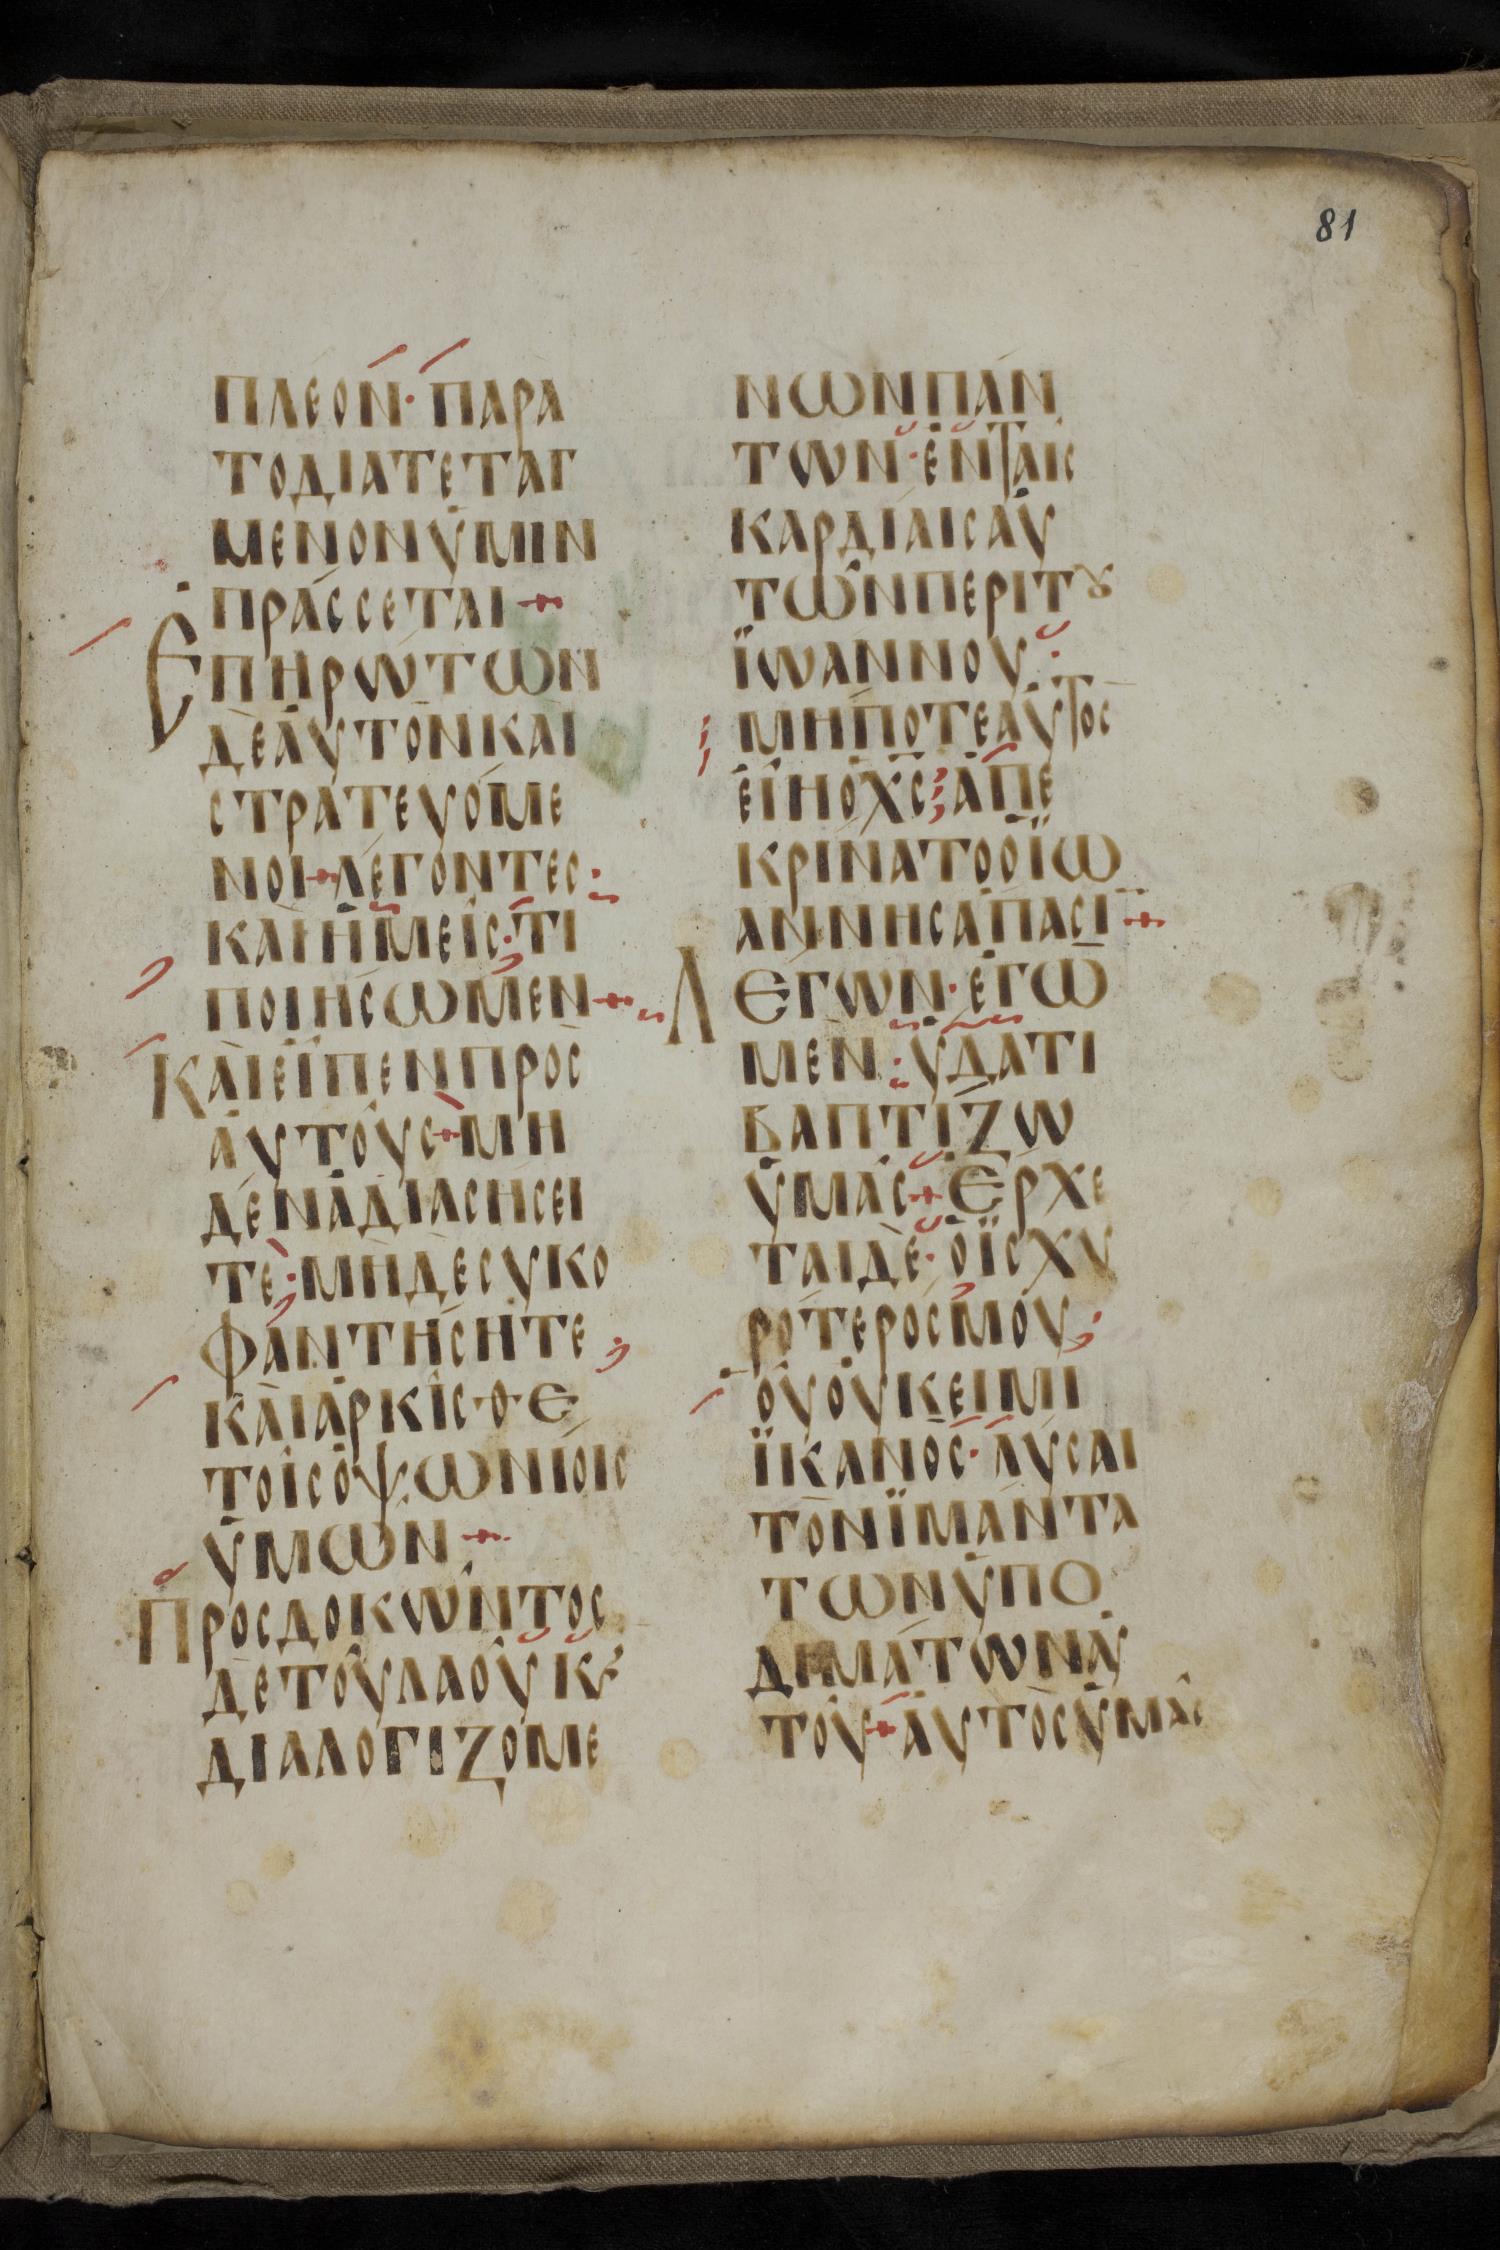 81
ΠΛΕΟΝ· ΠΑΡΑ
ΤΟΔΙΑΤΕΤΑΓ
ΜΕΝΟΝΥΜΙΝ
ΠΡΑΣΣΕΤΑΙ+
ΕΠΗΡΩΤΩΝ
ΔΕΑΥΤΟΝΚΑΙ
ΣΤΡΑΤΕΥΟΜΕ
ΝΟΙ+ΛΕΓΟΝΤΕΣ·
ΚΑΙΗΜΕΙΣ·ΤΙ
ΠΟΙΗΣΩΜΕΝ+
ΚΑΙΕΙΠΕΝΠΡΟΣ
ΑΥΤΟΥΣ+ΜΗ
ΔΕΝΑΔΙΑΣΗΣΕΙ
ΤΕ·ΜΗΔΕΣΥΚΟ
ΦΑΝΤΗΣΗΤΕ
ΚΑΙΑΡΚΙΣΘΕ
ΤΟΙΣΟΨΩΝΙΟΙΣ
ΥΜΩΝ+
ΠΡΟΣΔΟΚΩΝΤΟΣ
ΔΕΤΟΥΛΑΟΥΚϗ
ΔΙΑΛΟΓΙΖΟΜΕ
ΝΩΝΠΑΝ
ΤΩΝ·ΕΝΤΑΙΣ
ΚΑΡΔΙΑΙΣΑΥ
ΤΩΝΠΕΡΙΤȢ
ΪΩΑΝΝΟΥ·
ΜΗΠΟΤΕΑΥΤΟΣ
ΕΙΗΟΧΣ ΑΠΕ
ΚΡΙΝΑΤΟΟΪΩ
ΑΝΝΗΣΑΠΑΣΙ+
ΛΕΓΩΝ·ΕΓΩ
ΜΕΝ·ΥΔΑΤΙ
ΒΑΠΤΙΖΩ
ΥΜΑΣ+ΕΡΧΕ
ΤΑΙΔΕ·ΟΪΣΧΥ
ΡΟΤΕΡΟΣΜΟΥ
ΟΥΟΥΚΕΙΜΙ
ΪΚΑΝΟΣ·ΛΥΣΑΙ
ΤΟΝΪΜΑΝΤΑ
ΤΩΝΥΠΟ
ΔΗΜΑΤΩΝΑΥ
ΤΟΥ+ΑΥΤΟΣΥΜΑΣ